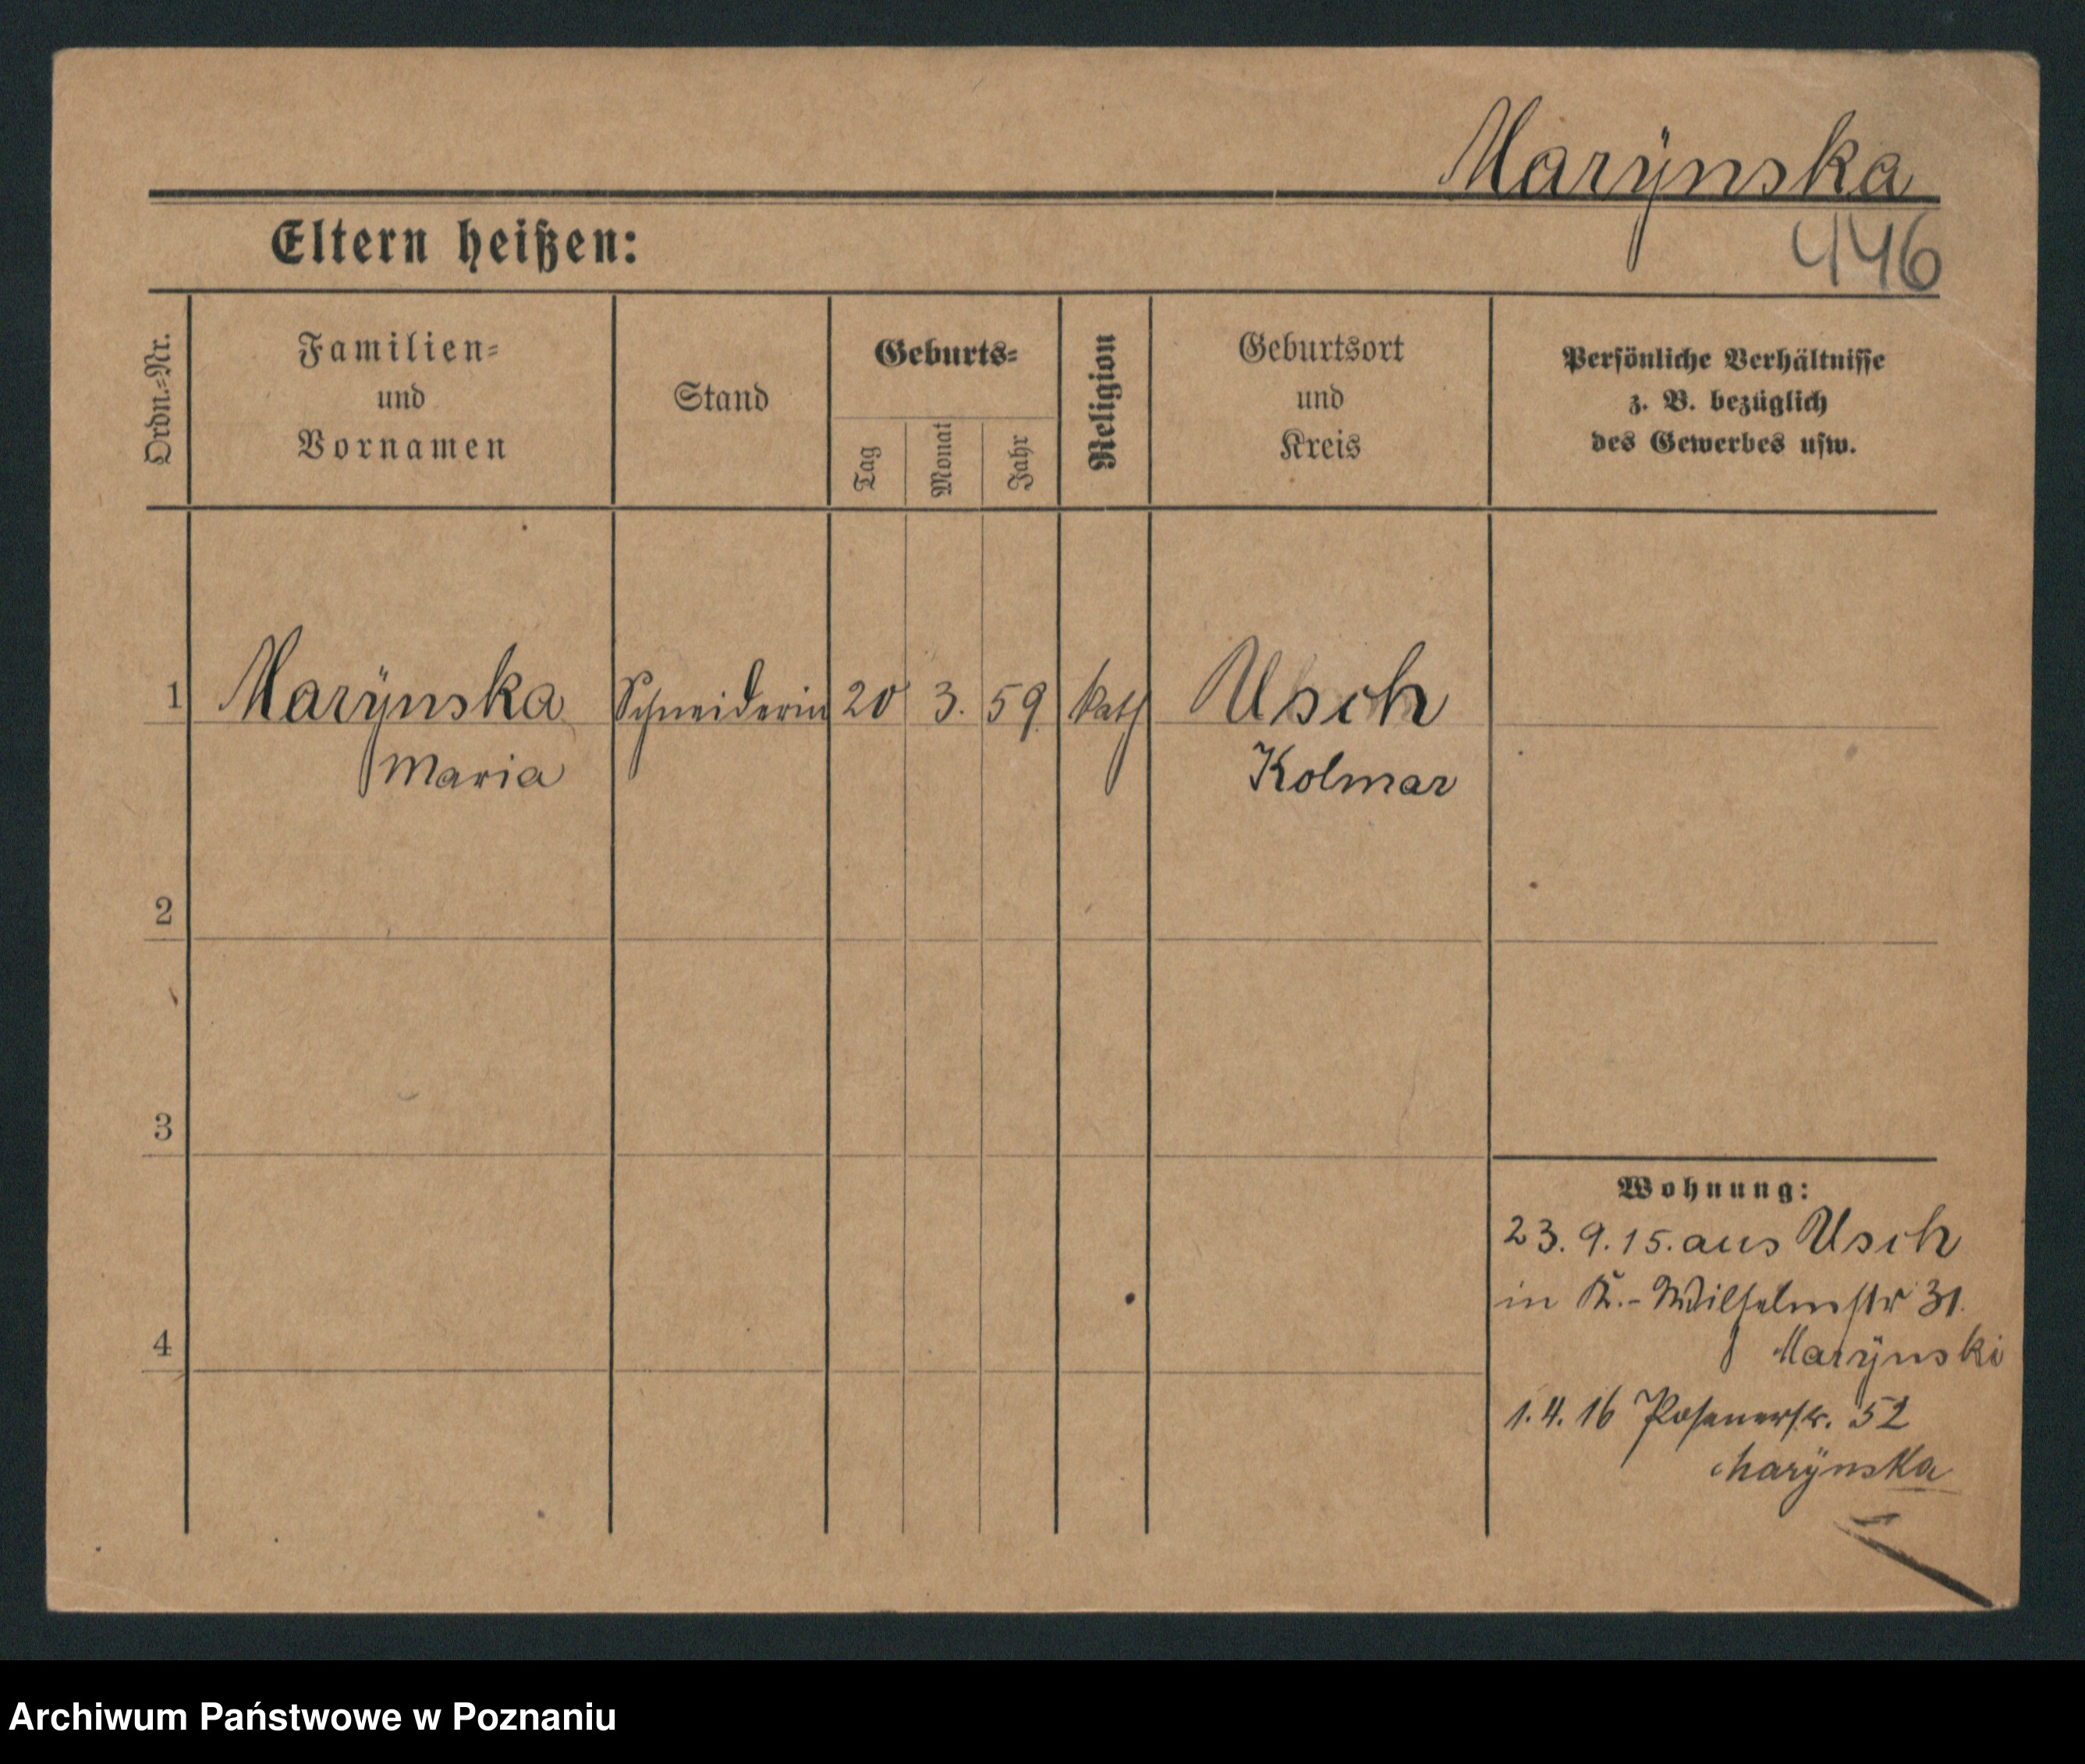 Marÿnska
446
Eltern heißen:
Ordn.-Nr.
Familien-
und
Vornamen
Stand
Geburts-
Tag
Monat
Jahr
Religion
Geburtsort
und
Kreis
Persönliche Verhältnisse
z. B. bezüglich
des Gewerbes usw.
1 Marÿnska Schneiderin 20 3. 59. kath Usch
Maria Kolmar
2
3
Wohnung:
23. 9. 15. aus Usch
in K.-Wilhelmstr 31.
4
Marÿnski
1. 4. 16 Posenerstr. 52
Marÿnska
Archiwum Państwowe w Poznaniu